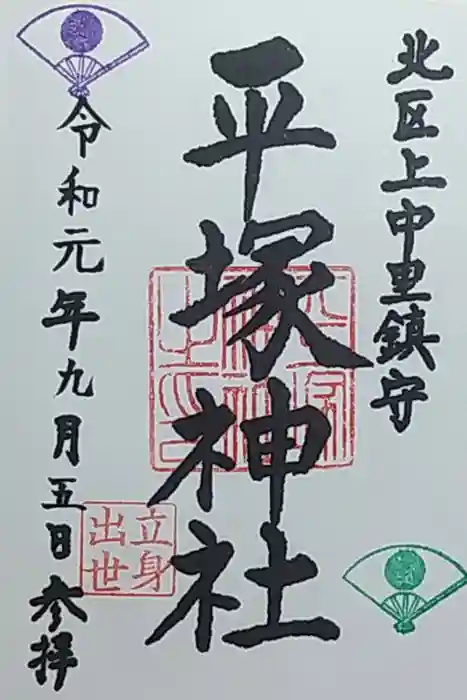 北区上中里鎮守
平塚神社
立身
出世
令和元年九月五日参拝